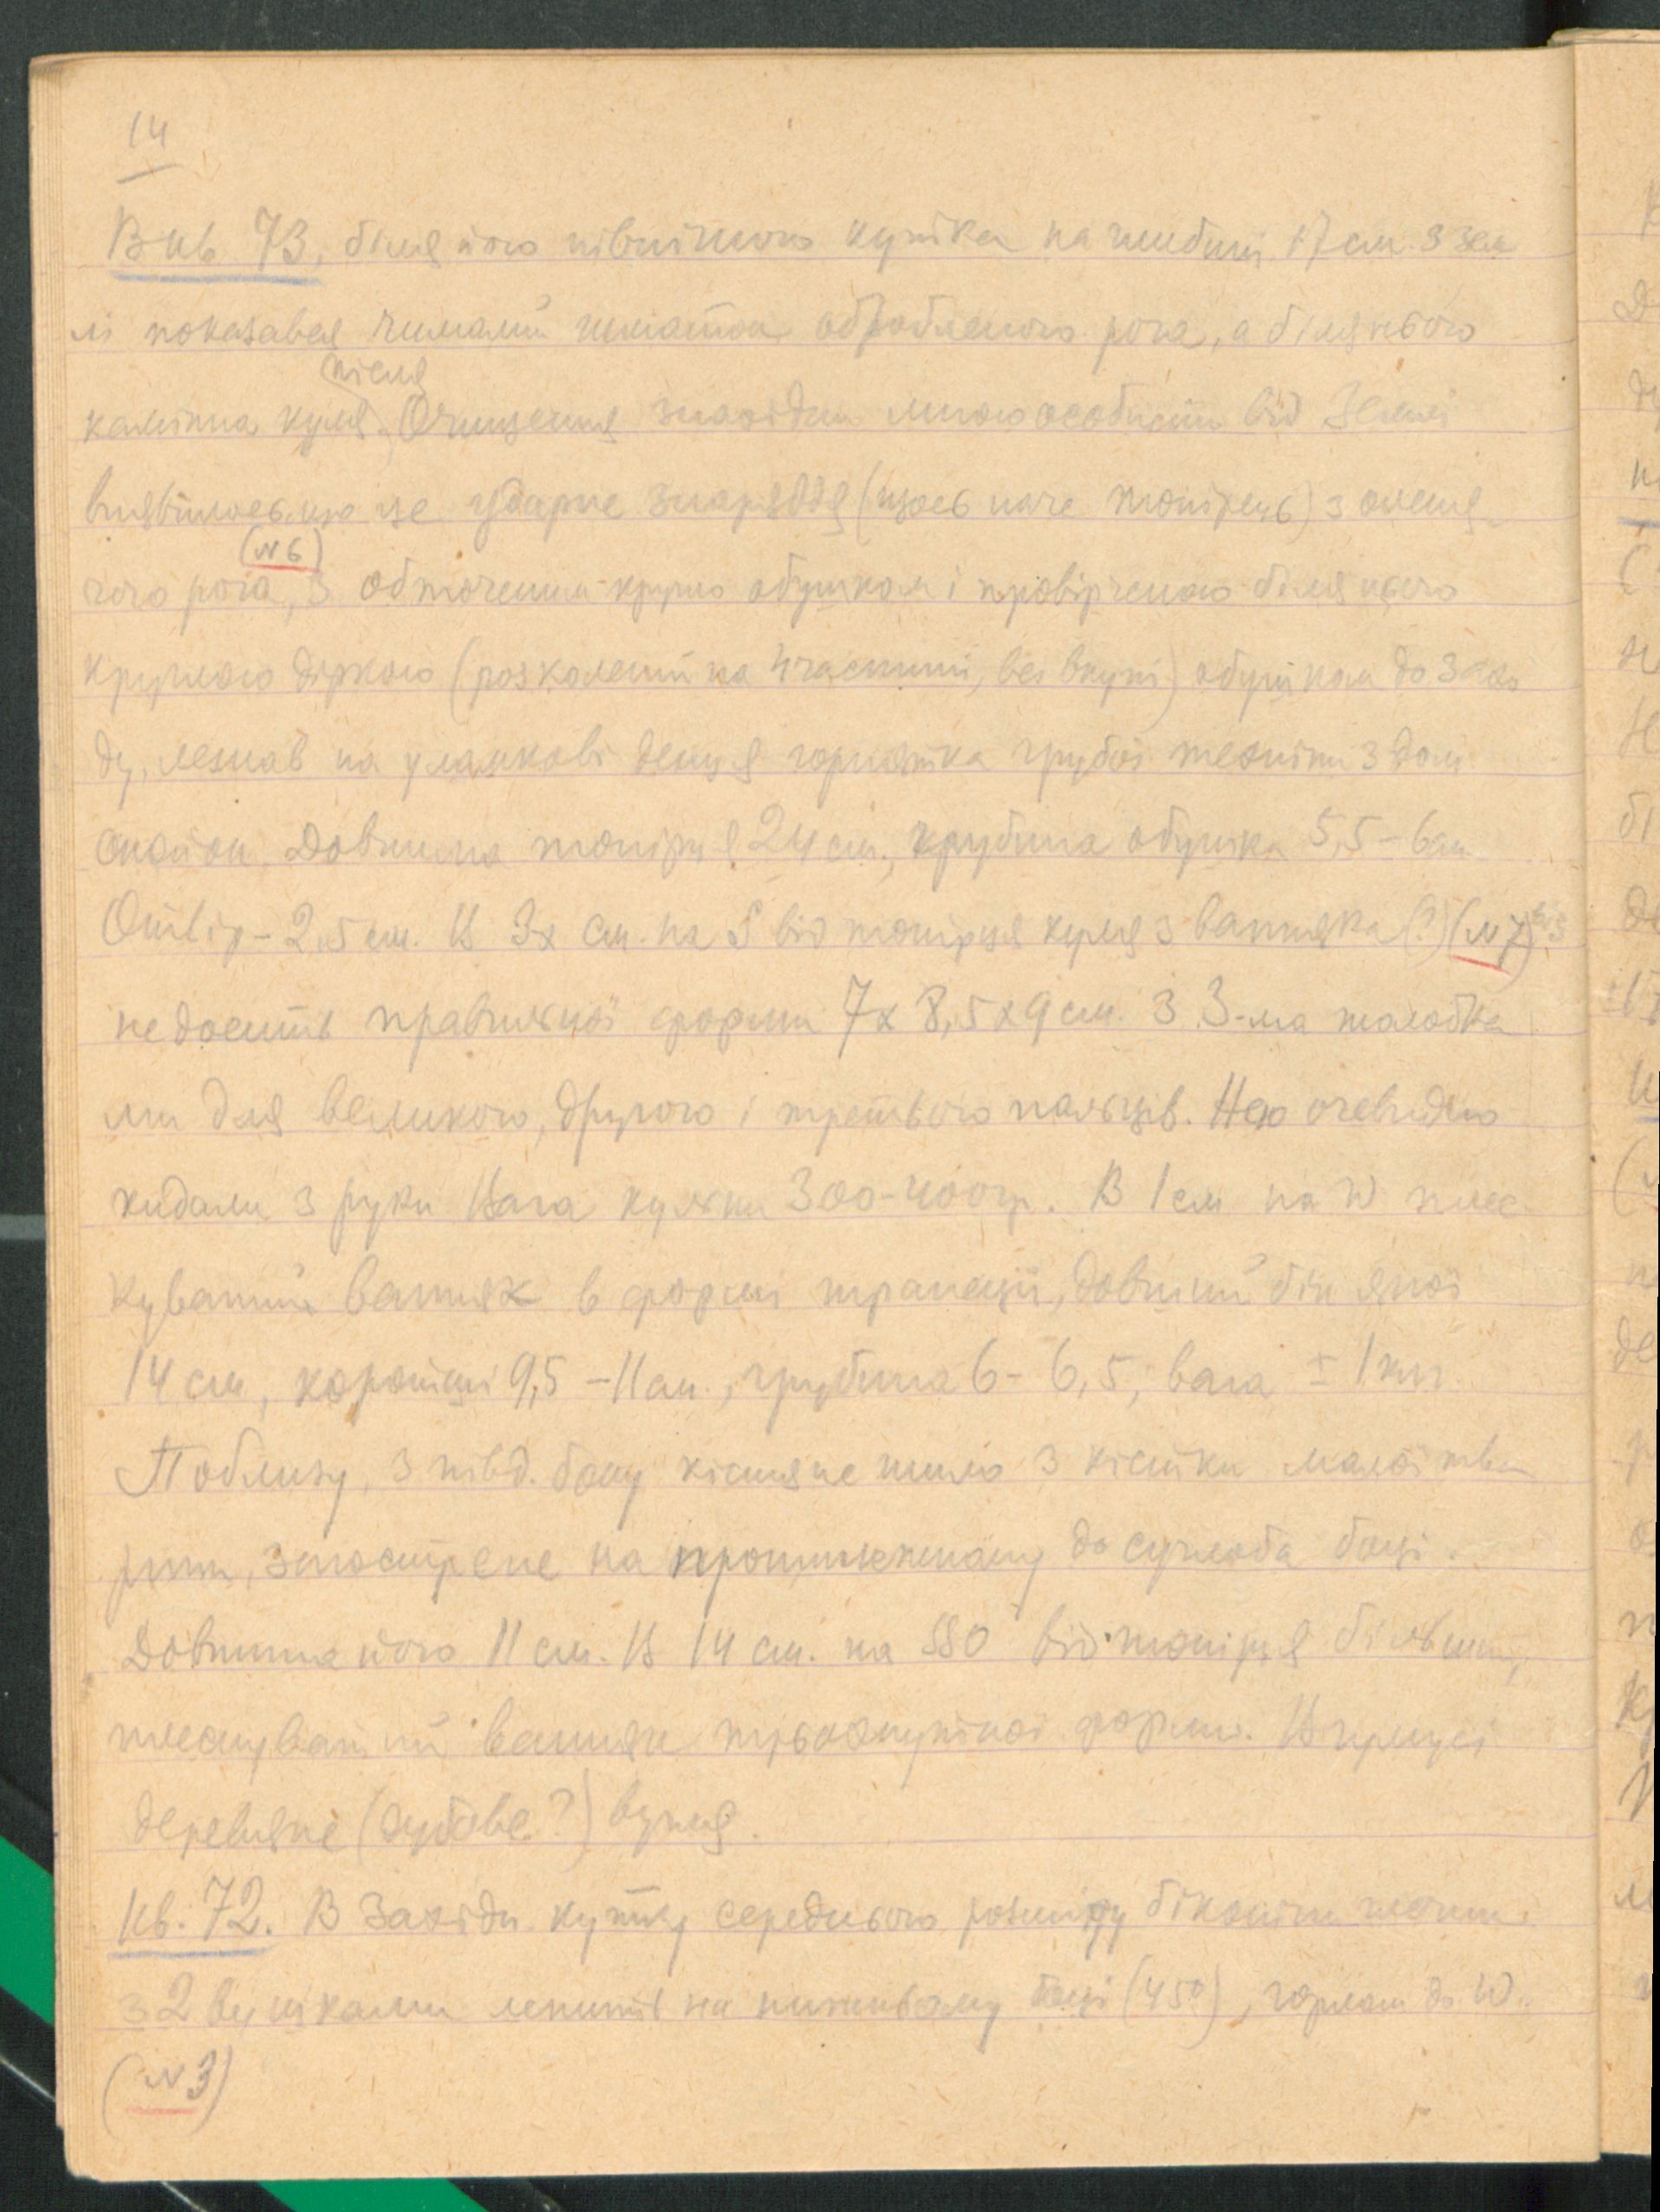 14
В кв 73, біля його північного кутка на глибині 17 см. з зем
лі показався чималий шматок обробленого рога, а біля нього
після
камінна куля. Очищення знахідки мною особисто від землі
виявилось, що це ударне знаряддя (щось наче топірець) з оленя-
(№6)
чого рога, з обточеним кругло обушком і провірченою біля нього
круглою діркою (розколений на 4 частини, всі вкупі) обушком до захо
ду, лежав на уламкові денця горщика грубої техніки з дом.
Довжина топірця 24 см., грубина обушка 5,5-6 см
Отвір - 2,5 см. В 3х см. на S від топірця куля з вапняка (?) (№7)
не досить правильної форми 7х8,5х9 см. з 3-ма жолобка
ми для великого, другого і третього пальців. Нею очевидно
кидали з руки Вага кульки 300-400 гр. В 1 см на W плес-
куватий вапняк в формі трапеції, довший бік якої
14 см, коротші 9,5-11 см., грубина 6-6,5, вага ± 1 кг.
Поблизу, з півд. боку кістяне шило з кістки малої тва
рини, загострене на протилежному до суглоба боці.
Довжина його 11 см. В 14 см. на SSO від топірця більший,
плескуватий вапняк трьохкутної форми. В гумусі
деревляне (дубове?) вугля.
Кв. 72. В Західн. кутку середнього розміру біконічн.
з 2 вушками лежить на нижньому боці (45°), горлом до W.
(№3)